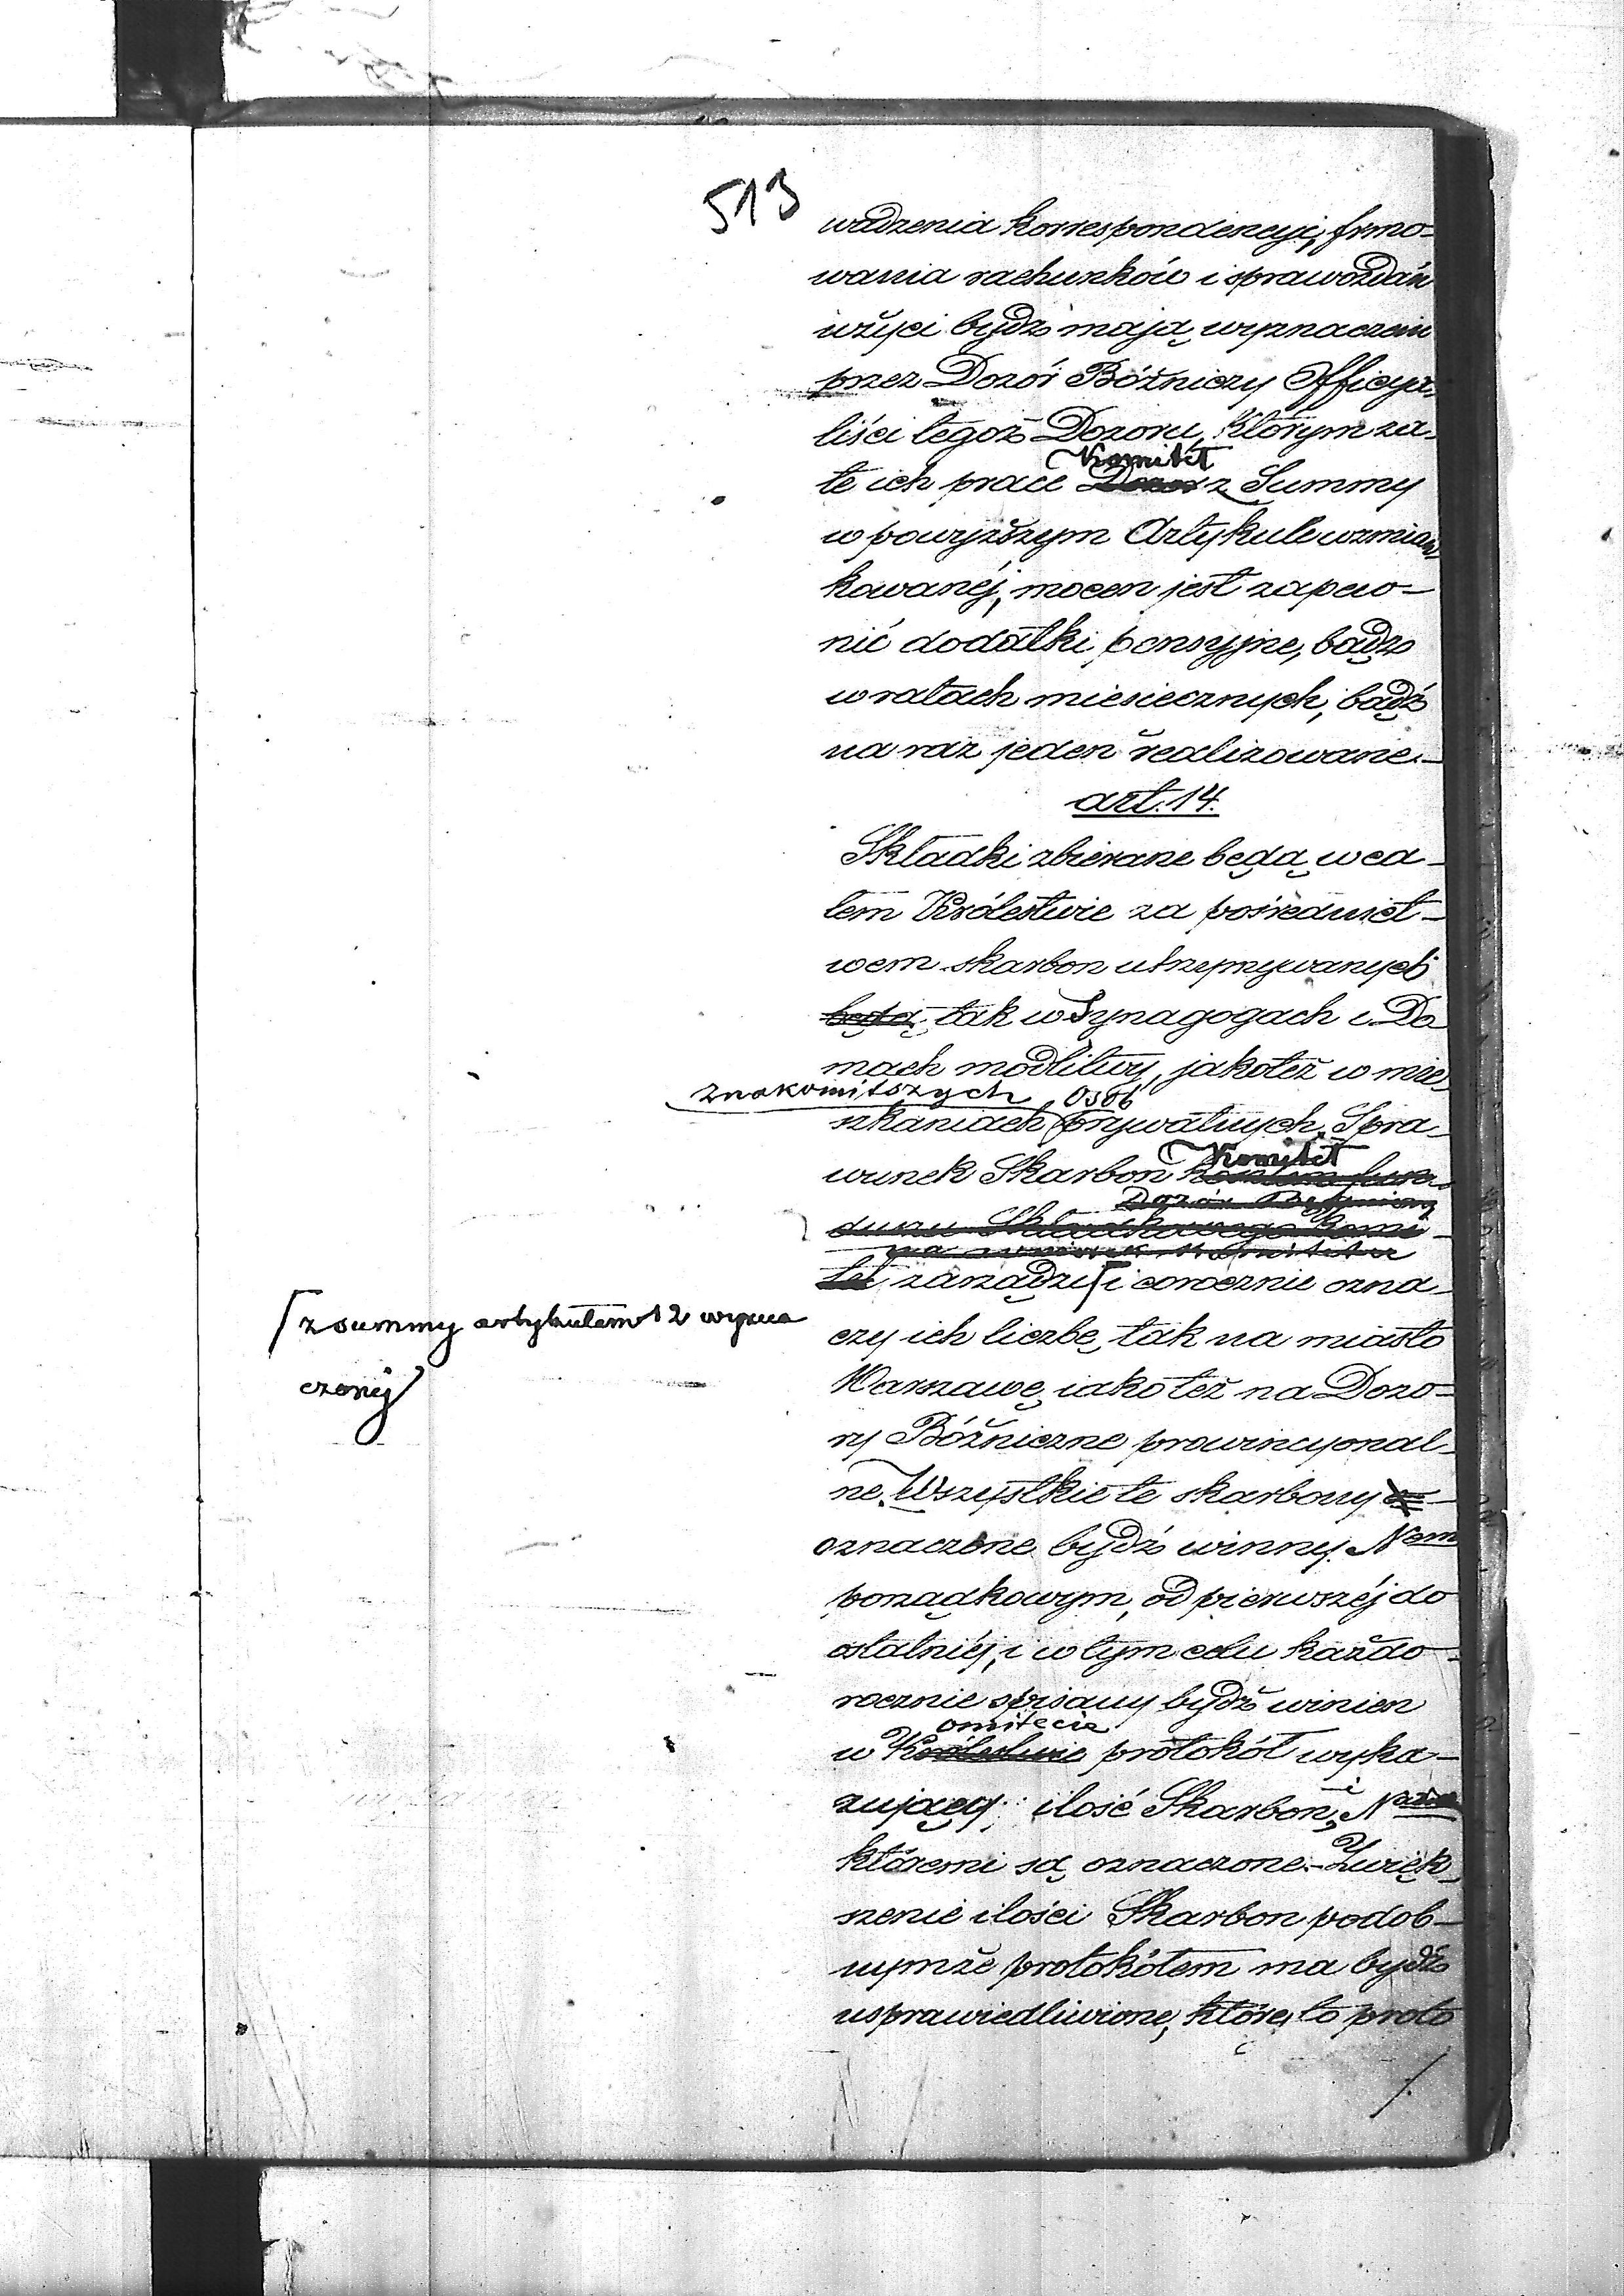 513
wadzenia korrespondencyi, frmo-
wania rachunków i sprawozdań
użyci bydź mają wyznaczeni
przez Dozór Bóżniczy Officya-
liści tegoż Dozoru, którym za
te ich prace Komitet
Dozor z Summy
w powyższym Artykule wzmian
kowanéj, mocen jest zapew-
nić dodatki pensyjne, bądź
w ratach miesiecznych, bądź
na raz jeden realizowane.-
art. 14.
Składki zbierane będą w ca-
łem Królestwie za pośrednict-
wem skarbon utrzymywanych
będą, tak w Synagogach i Do
mach modlitwy, jakoteż w mie-
znakomitszych osób
szkaniach prywatnych. Spra-
wunek Skarbon Komitet
kosztem fun-
Dozór Bóżniczy
duszu Składkowego Komi-
na wniosek Komitetu
tet zarządzi i corocznie ozna-
z summy artykułem 12 wyzna
czonéj
czy ich liczbę, tak na miasto
Warszawę iakoteż na Dozo-
ry Bóżniczne prowincyonal-
ne. Wszystkie te skarbony
oznaczone bydź winny Nem
porządkowym, od pierwszéj do
ostatniéj, i w tym celu każdo-
rocznie spisany bydź winien
omitecie
w Królestwie protokół wyka-
zujący: ilość Skarbon, i N
któremi są oznaczone.- Zwięk-
szenie ilości Skarbon podob-
nymże protokółem ma bydź
usprawiedliwione, które to proto